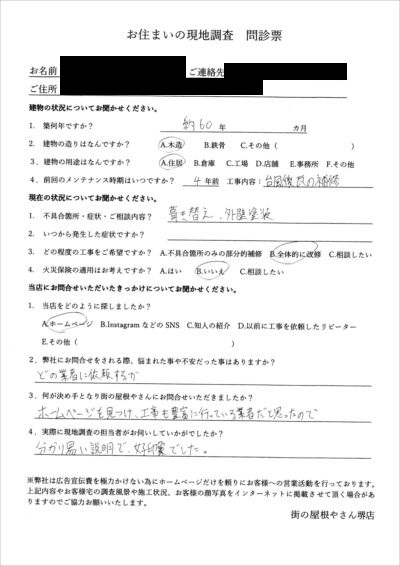 お住まいの現地調査　問診票
お名前　ご連絡先
ご住所
建物の状況についてお聞かせください。
1. 築何年ですか？　約60年　カ月
2. 建物の造りはなんですか？　A.木造　B.鉄骨　C.その他（　　）
3. 建物の用途はなんですか？　A.住居　B.倉庫　C.工場　D.店舗　E.事務所　F.その他
4. 前回のメンテナンス時期はいつですか？　4年前　工事内容：台風後瓦の補修
現在の状況についてお聞かせください。
1. 不具合箇所・症状・ご相談内容？　葺き替え、外壁塗装
2. いつから発生した症状ですか？
3. どの程度の工事をご希望ですか？　A.不具合箇所のみの部分的補修　B.全体的に改修　C.相談したい
4. 火災保険の適用はお考えですか？　A.はい　B.いいえ　C.相談したい
当店にお問合わせいただいたきっかけについてお聞かせください。
1. 当店をどのように探しましたか？
A.ホームページ　B.InstagramなどのSNS　C.知人の紹介　D.以前に工事を依頼したリピーター
E.その他（　　）
2. 弊社にお問合せをされる際、悩まれた事や不安だった事はありますか？
どの業者に依頼するか
3. 何が決め手となり街の屋根やさんにお問合せいただきましたか？
ホームページを見つけ、工事も豊富に行っている業者だと思ったので
4. 実際に現地調査の担当者がお伺いしていかがでしたか？
分かり易い説明で、好印象でした。
※弊社は広告宣伝費を極力かけない為にホームページだけを頼りにお客様への営業活動を行っております。
上記内容やお客様宅の調査風景や施工状況、お客様の顔写真をインターネットに掲載させて頂く場合があ
りますのでご協力お願いいたします。
街の屋根やさん堺店